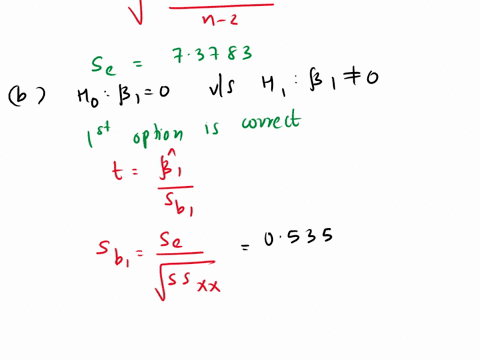 √ n-2
Se = 7.3783
(b) H0 : β1 = 0 v/s H1 : β1 ≠ 0
1st option is correct
t = β̂1 / Sb1
Sb1 = Se / √SSxx = 0.535